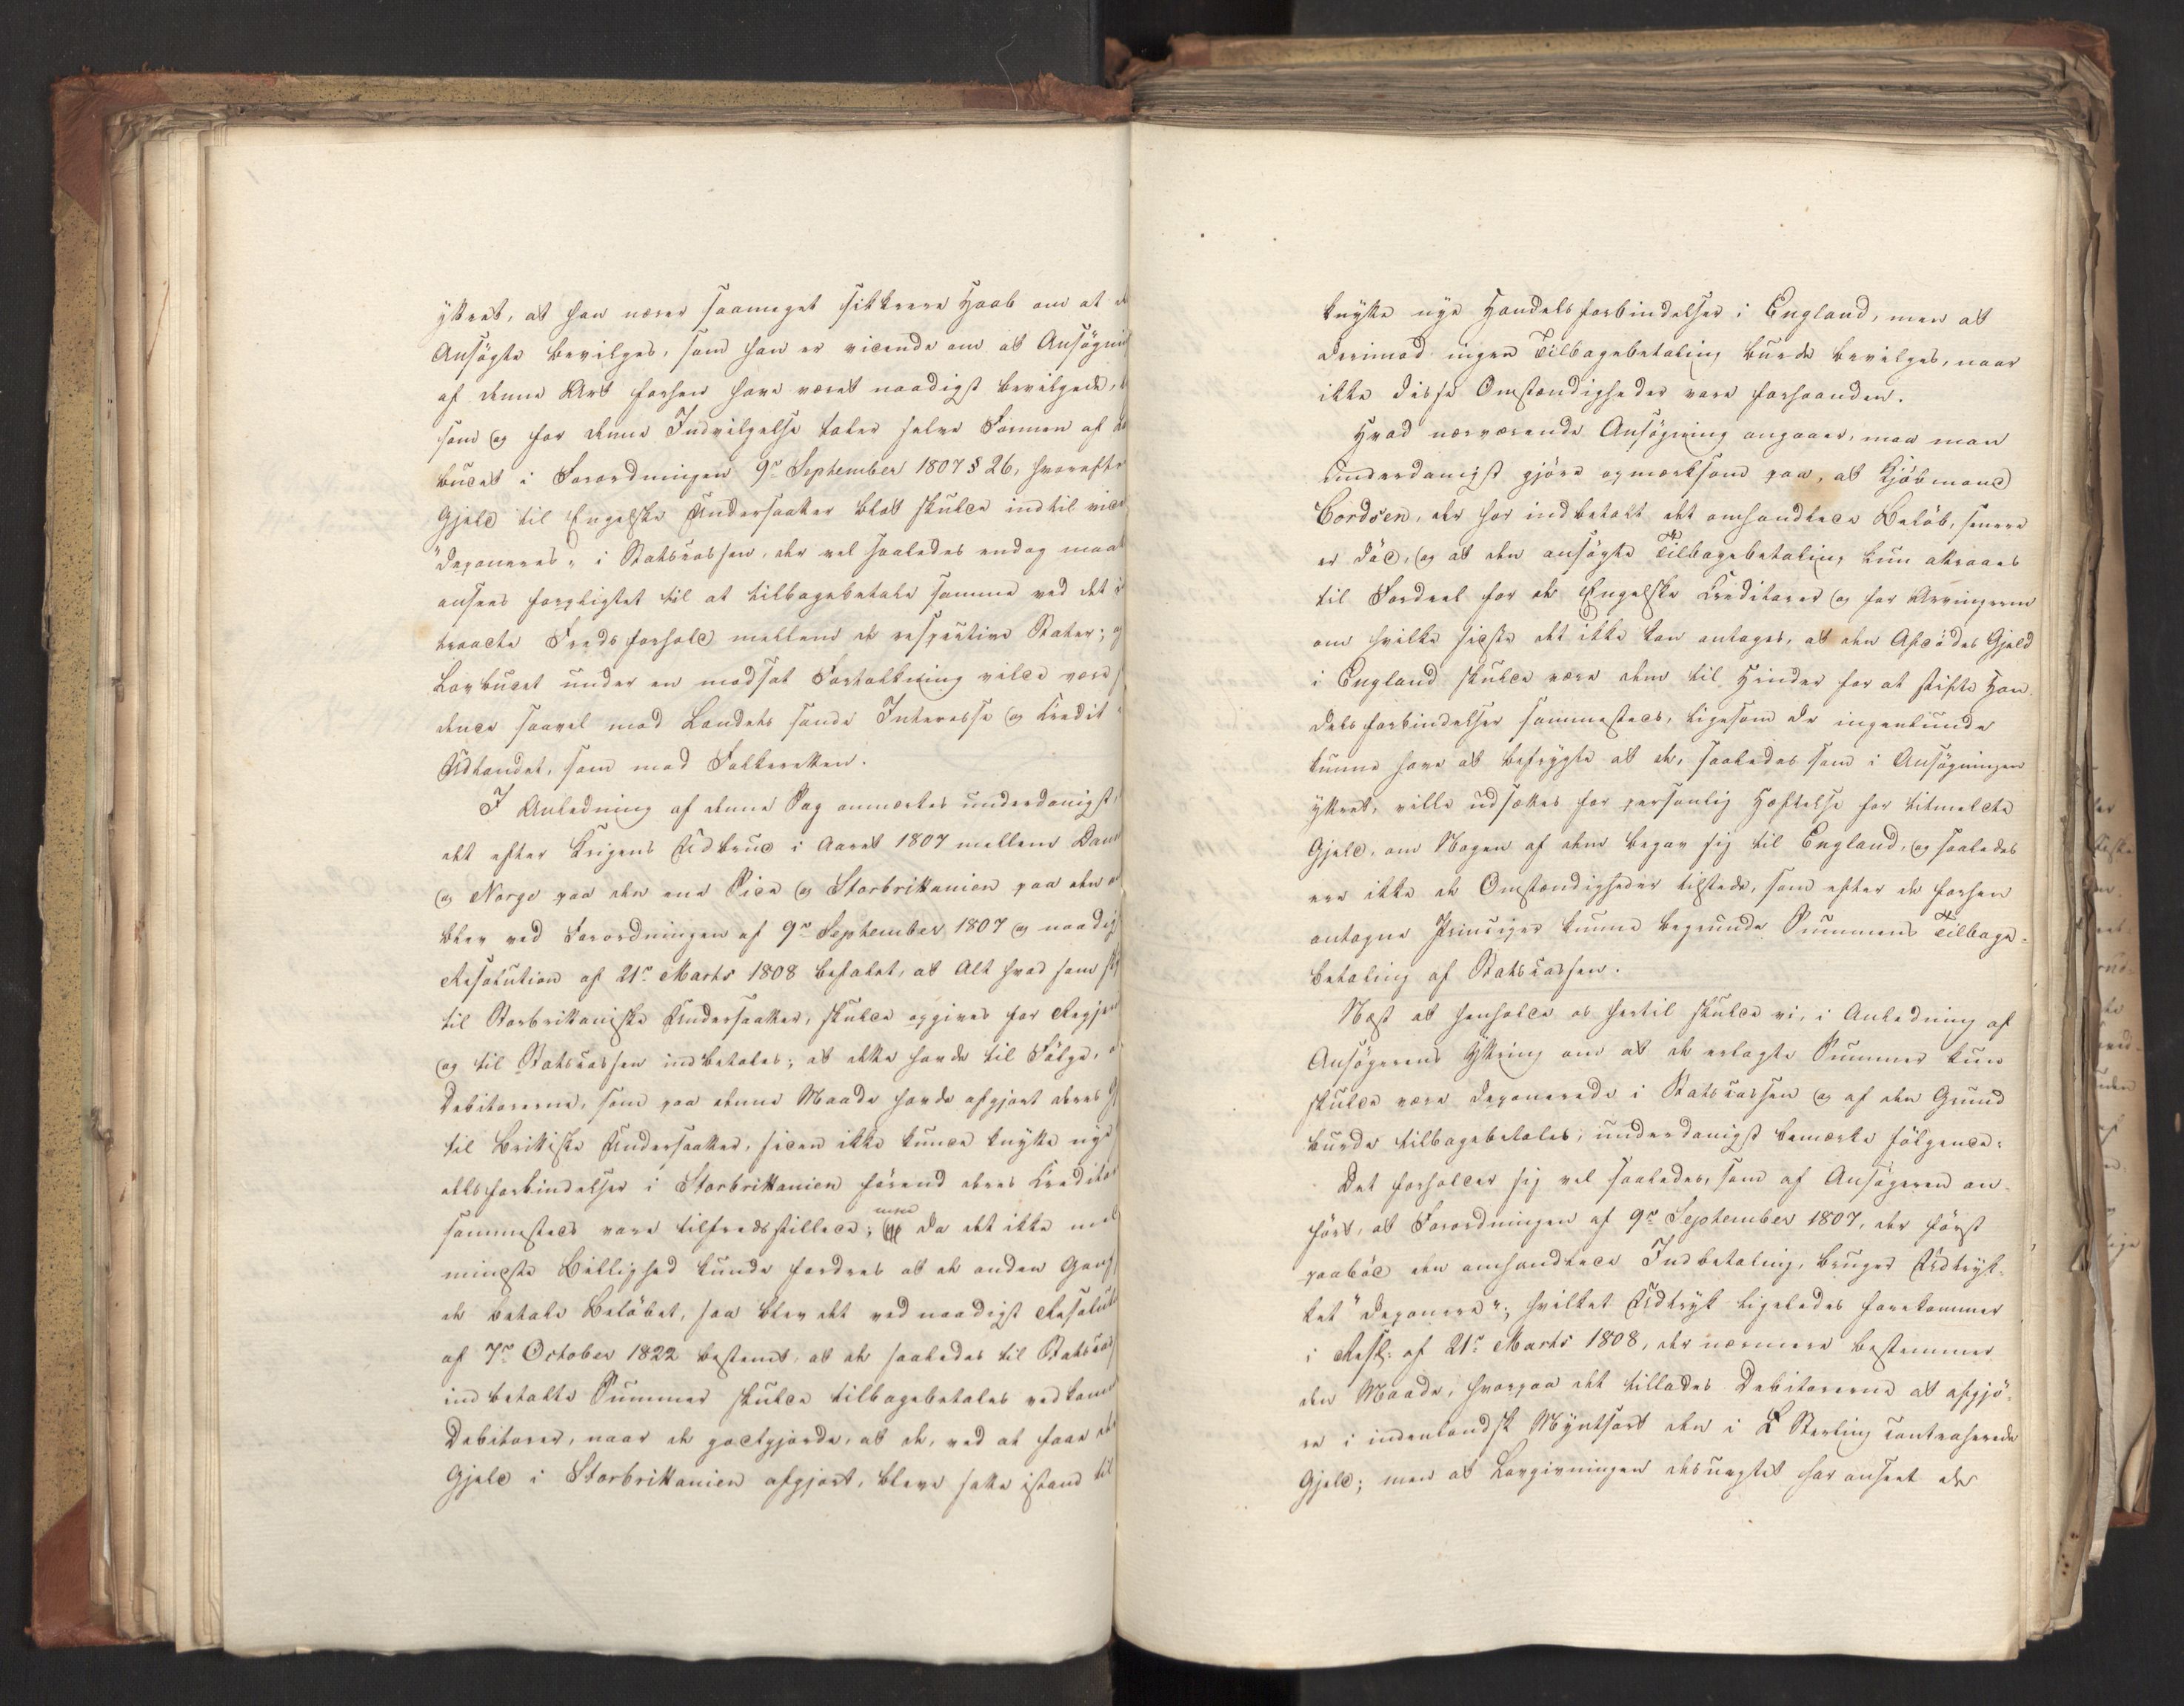 yttret, at han nærer saameget sikkrere Haab om at d
Ansögte bevilges, som han er vidende om at Ansögning
af denne Art forhen have været naadigst bevilgede,
som og for denne Indvilgelse taler selve Formen af
budet i Forordningen 9de September 1807 § 26, hvorefter
Gjeld til Engelske Undersaatter blot skulde indtil vid
"deponeres" i Statscassen, der vel saaledes endog maat
ansees forpligtet til at tilbagebetale samme ved det i
traadte Fredsforhold mellem de respective Stater; og
Lovbudet under en modsat Fortolkning vilde være
dende saavel mod Landets sande Interesse og Credit i
Udlandet, som mod Folkeretten.
I Anledning af denne Sag anmærkes underdanigst,
det efter Krigens Udbrud i Aaret 1807 mellem Danm
og Norge paa den ene Side og Storbrittanien paa den
blev ved Forordningen af 9de September 1807 og naadig
Resolution af 21de Marts 1808 befalet, at Alt hvad som
til Storbrittaniske Undersaatter, skulde opgives for Regjer
og til Statscassen indbetales; at dette havde til Fölge, a
Debitorerne, som paa denne Maade havde afgjort deres G
til Brittiske Undersaatter, siden ikke kunde knytte nye
delsforbindelser i Storbrittanien förend deres Creditor
sammesteds vare tilfredsstillede; men da det ikke med
mindste Billighed kunde fordres at de anden Gang
de betale Belöbet, saa blev det ved naadigst Resolut
af 7de October 1822 bestemt, at de saaledes til Statscas
indbetalte Summer skulde tilbagebetales vedkomm
Debitorer, naar de godtgjorde, at de, ved at faae de
Gjeld i Storbrittanien afgjort, bleve satte istand til
knytte nye Handelsforbindelser i England, men at
derimod ingen Tilbagebetaling burde bevilges, naar
ikke disse Omstændigheder vare forhaanden.
Hvad nærværende Ansögning angaaer, maa man
underdanigst gjöre opmærksom paa, at Kjöbmand
Cordsen, der har indbetalt det omhandlede Belöb, senere
er död, og at den ansögte Tilbagebetaling kun attraaes
til Fordeel for de Engelske Creditorer og for Arvingerne
om hvilke sidste det ikke kan antages, at den Afdödes Gjeld
i England skulde være dem til Hinder for at stifte Han-
delsforbindelser sammesteds, ligesom de ingenlunde
kunne have at befrygte at de, saaledes som i Ansögningen
yttret, ville udsættes for personlig Hæftelse for titmeldte
Gjeld, om Nogen af dem begav sig til England, og saaledes
ere ikke de Omstændigheder tilstede, som efter de forhen
antagne Principer kunne begrunde Summens Tilbage-
betaling af Statscassen.
Næst at henholde os hertil skulde vi, i Anledning af
Ansögerens Yttring om at de erlagte Summer kun
skulde være deponerede i Statscassen og af den Grund
burde tilbagebetales, underdanigst bemærke fölgende:
Det forholder sig vel saaledes, som af Ansögeren an-
fört, at Forordningen af 9de September 1807, der först
paaböd den omhandlede Indbetaling, bruger Udtryk-
ket "deponere"; hvilket Udtryk ligeledes forekommer
i Resl: af 21de Marts 1808, der nærmere bestemmer
den Maade, hvorpaa det tillades Debitorerne at afgjö-
re i indenlandsk Myntsort den i £ Sterling contraherede
Gjeld; men at Lovgivningen desuagtet har anseet den